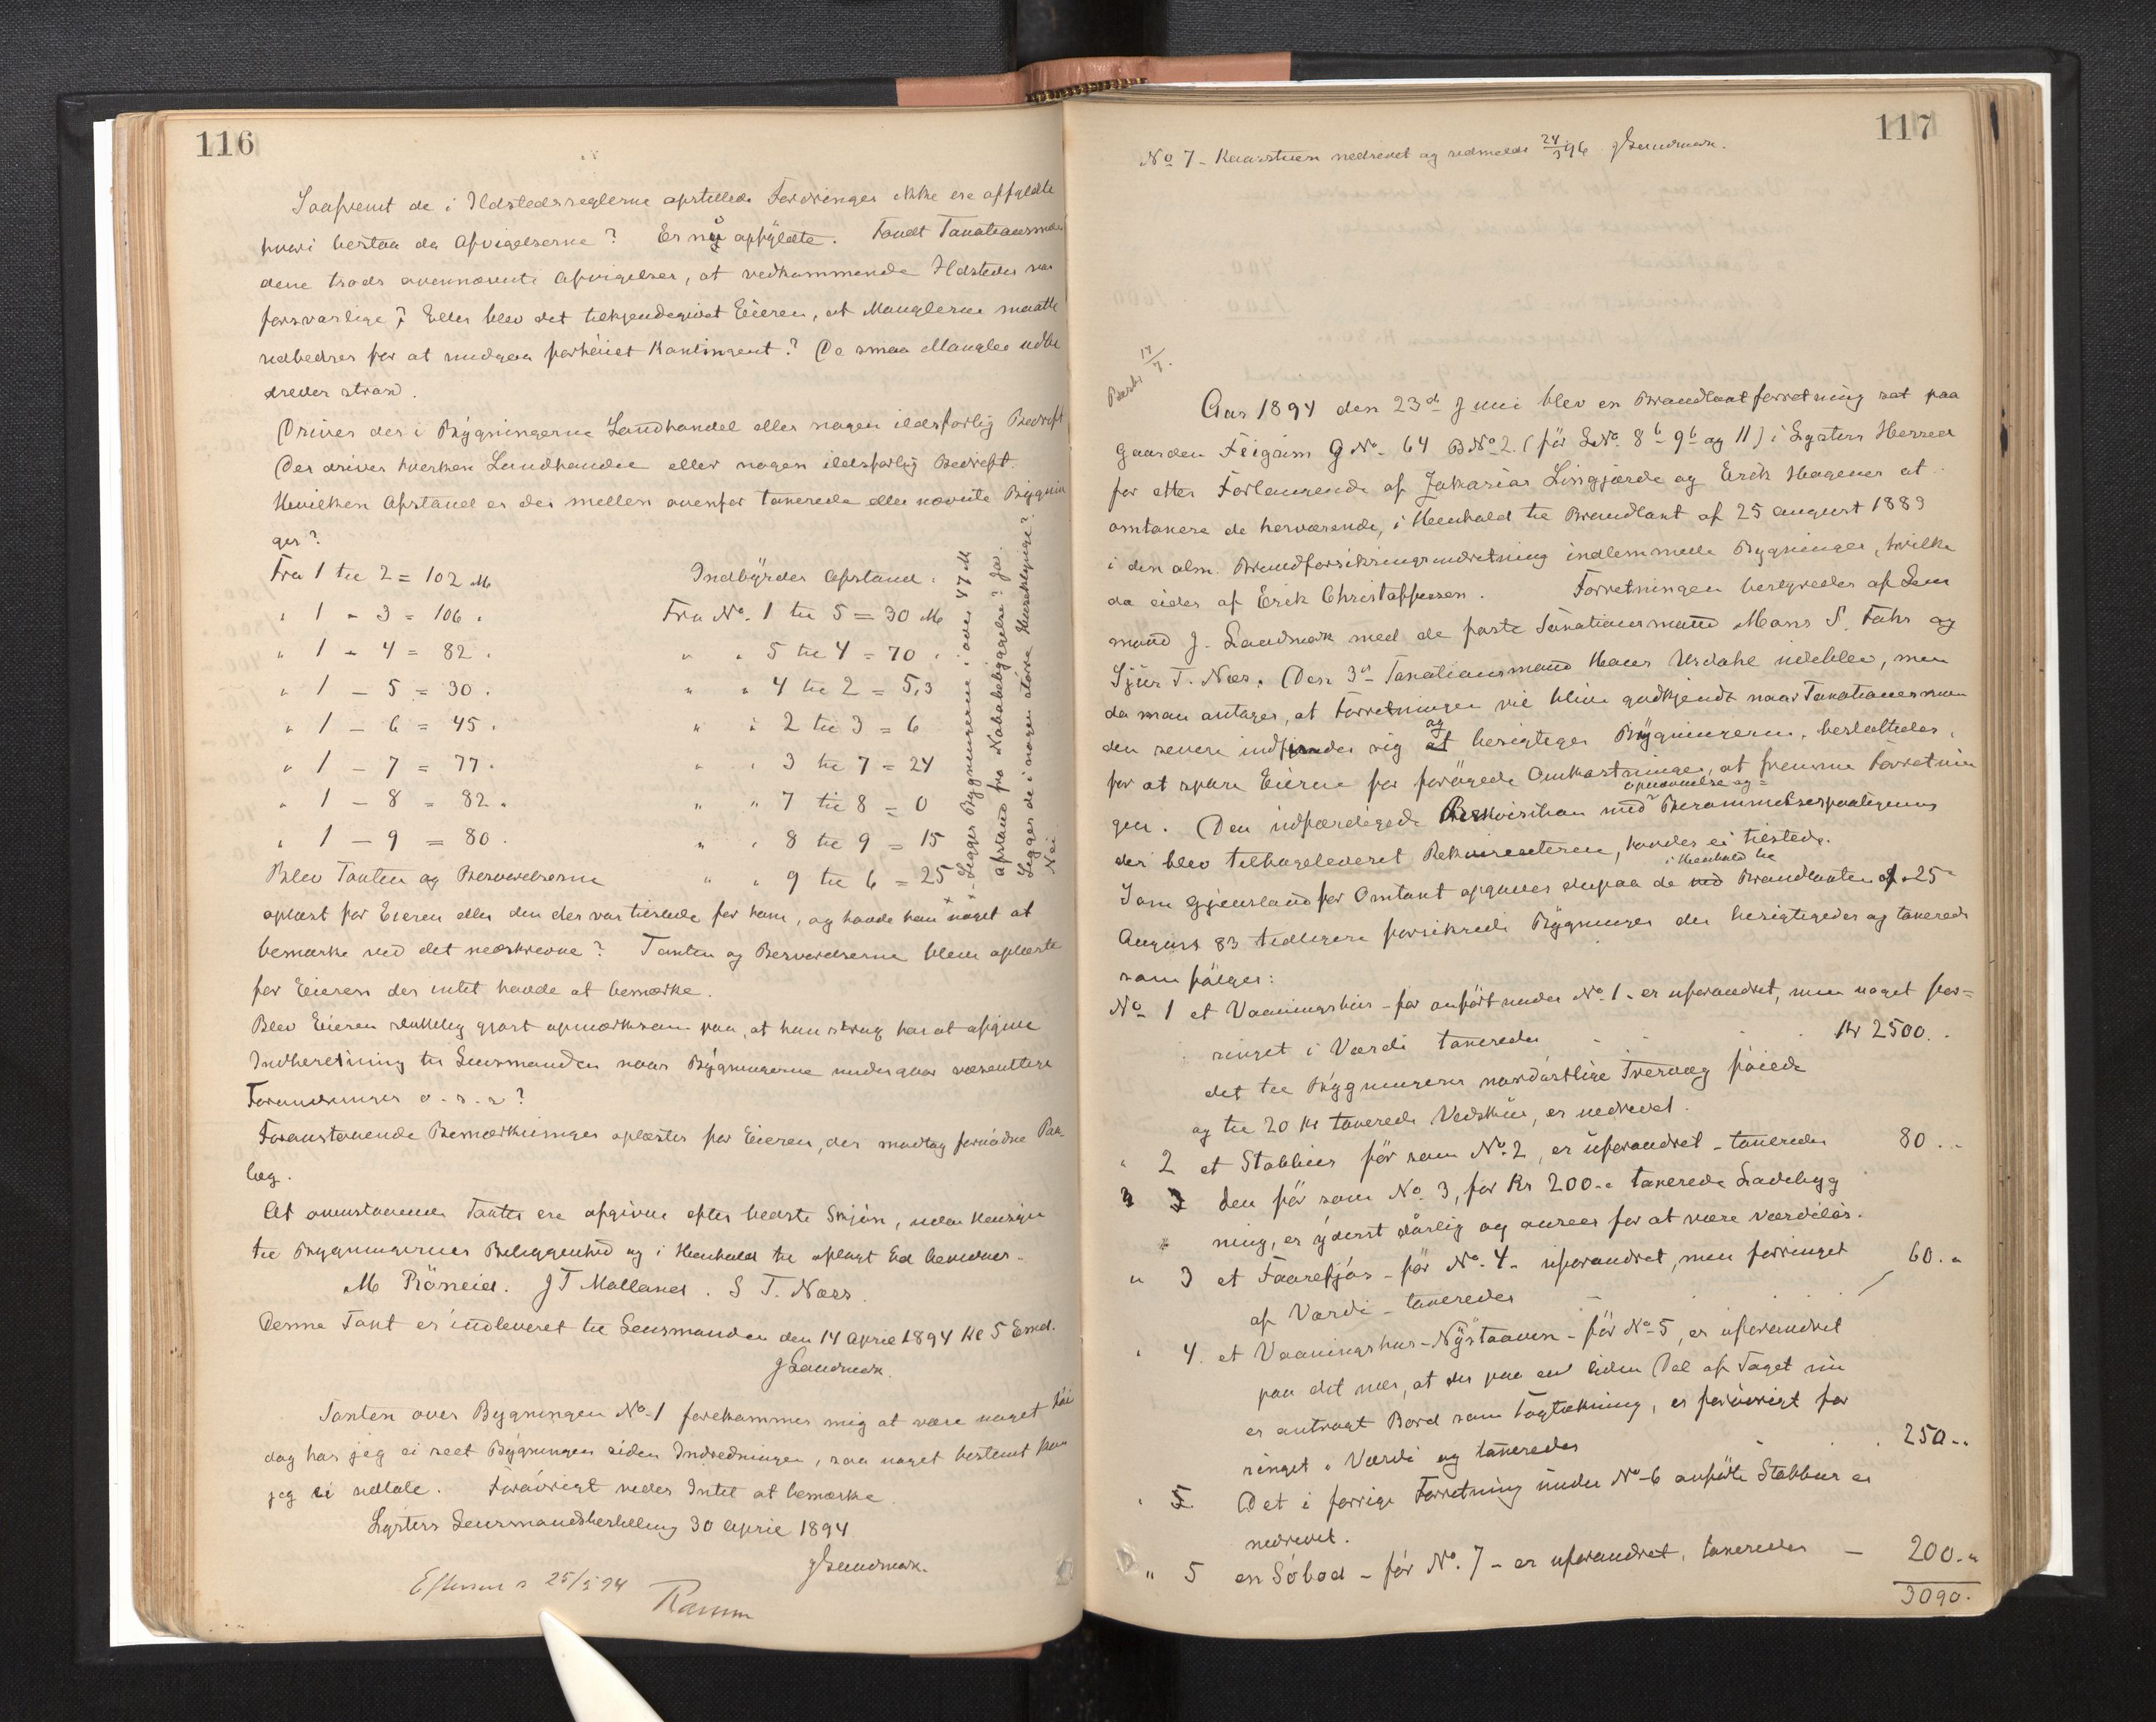 116
Saafremt de i Ildstedsreglerne opstillede Fordringer ikke ere opfyldte
hvori bestaa da Afvigelserne? Er nu opfyldte. Fandt Taxationsmæn
dene trods ovennævnte Afvigelser, at vedkommende Ildsteder var
forsvarlige? Eller blev det tilkjendegivet Eieren, at Manglerne maatte
udbedres for at undgaa forhøiet Kontingent? De smaa Mangler udbe
dredes strax.
Drives der i Bygningerne Landhandel eller nogen ildsfarlig Bedrift
Der drives hverken Landhandel eller nogen ildsfarlig Bedrift.
Hvilken Afstand er der mellem ovenfor taxerede eller nævnte Bygnin
ger?
Fra 1 til 2 = 102 M
" 1 - 3 = 106 .
" 1 - 4 = 82 .
" 1 - 5 = 30 .
" 1 - 6 = 45 .
" 1 - 7 = 77 .
" 1 - 8 = 82 .
" 1 - 9 = 80 .
Indbyrdes Afstand.
Fra No. 1 til 5 = 30 M
" " 5 til 4 = 70 .
" " 4 til 2 = 5,3
" " 2 til 3 = 6
" " 3 til 7 = 24
" " 7 til 8 = 0
" " 8 til 9 = 15
" " 9 til 6 = 25
x Ligger Bygningerne i over 47 M
afstand fra Nabobebyggelse? Ja.
Ligger de i nogen større Huseklynge?
Nei
Blev Taxten og Beskrivelserne
oplæst for Eieren eller den der var tilstede for ham, og havde han noget at
bemærke ved det nedskrevne? Taxten og Beskrivelserne blev oplæste
for Eieren der intet havde at bemærke.
Blev Eieren skikkelig gjort opmærksom paa, at han strax har at afgive
Indberetning til Lensmanden naar Bygningerne undergaar væsentlige
Forandringer o. s. v?
Foranstaaende Bemærkninger oplæstes for Eieren, der modtog fornødne Paa-
læg.
At ovenstaaende Taxter ere afgivne efter bedste Skjøn, uden Hensyn
til Bygningernes Beliggenhed og i Henhold til aflagt Ed bevidnes.
M Röneid. J T Molland. S T. Næss.
Denne Taxt er indleveret til Lensmanden den 14 April 1894 Kl 5 Emd.
J Landmark.
Taxten over Bygningen No 1 forekommer mig at være noget høi
dog har jeg ei seet Bygningen siden Indredningen, saa noget bestemt kan
jeg ei udtale. Forøvrigt vides Intet at bemærke.
Lysters Lensmandsbestilling 30 April 1894
J Landmark.
25/5 94
Ramm
117
No 7 - nedrevet og udmeldt 24/3 96 J Landmark.
17/7.
Aar 1894 den 23d Juni blev en Brandtaxtforretning sat paa
Gaarden Feigum G No. 64 B No 2. (før L No. 8b 9b og 11) i Lysters Herred
for efter Forlangende af Zakarias Lingjærde og Erik Hagenes at
omtaxere de herværende, i Henhold til Brandtaxt af 25 August 1883
i den alm. Brandforsikringsindretning indlemmede Bygninger, hvilke
da eides af Erik Christoffersen. Forretningen bestyredes af Lens
mand J. Landmark med de faste Taxationsmænd Mons S. Fahr og
Sjur T. Næs. Den 3die Taxationsmand Hans Urdahl udeblev, men
da man antager, at Forretningen vil blive godkjendt naar Taxationsman
den senere indfinder sig og besigtiger Bygningerne, besluttedes,
for at spare Eierne for forøgede Omkostninger, at fremme Forretnin
gen. Den udfærdigede Rekvisition med Opnævnelse og Berammelsespaategning
der blev tilbageleveret Rekvirenterne, havdes ei tilstede.
Som Gjenstand for Omtaxt opgaves deepaa de i Henhold til Brandtaxten af 25
August 83 tidligere forsikrede Bygninger der besigtigedes og taxeredes
som følger:
No 1 et Vaaningshus - før anført under No 1 - er uforandret, men noget for=
ringet i Værdi taxeredes - - Kr 2500. .
det til Bygningens nordøstlige Tvervæg føiede
og til 20 Kr taxerede Vedskur, er nedrevet.
" 2 et Stabbur før som No 2, er uforandret - taxeredes 80 . -
den før som No. 3, for Kr 200.- taxerede Ladebyg
ning, er yderst dårlig og ansees for at være værdiløs.
" 3 et Faarefjøs - før No. 4 - uforandret, men forringet
af Værdi - taxeredes - 60. "
" 4. et Vaaningshus - Nystaaven - før No 5, er uforandret
paa det nær, at der paa en liden Del af Taget nu
er antragt Bord som Tagtækning, er forøvrigt for
ringet i Værdi og taxeredes . 250 ..
Det i forrige Forretning under No 6 anførte Stabbur er
nedrevet.
" 5 en Søbod - før No. 7 - er uforandret, taxeredes - 200. "
3090.